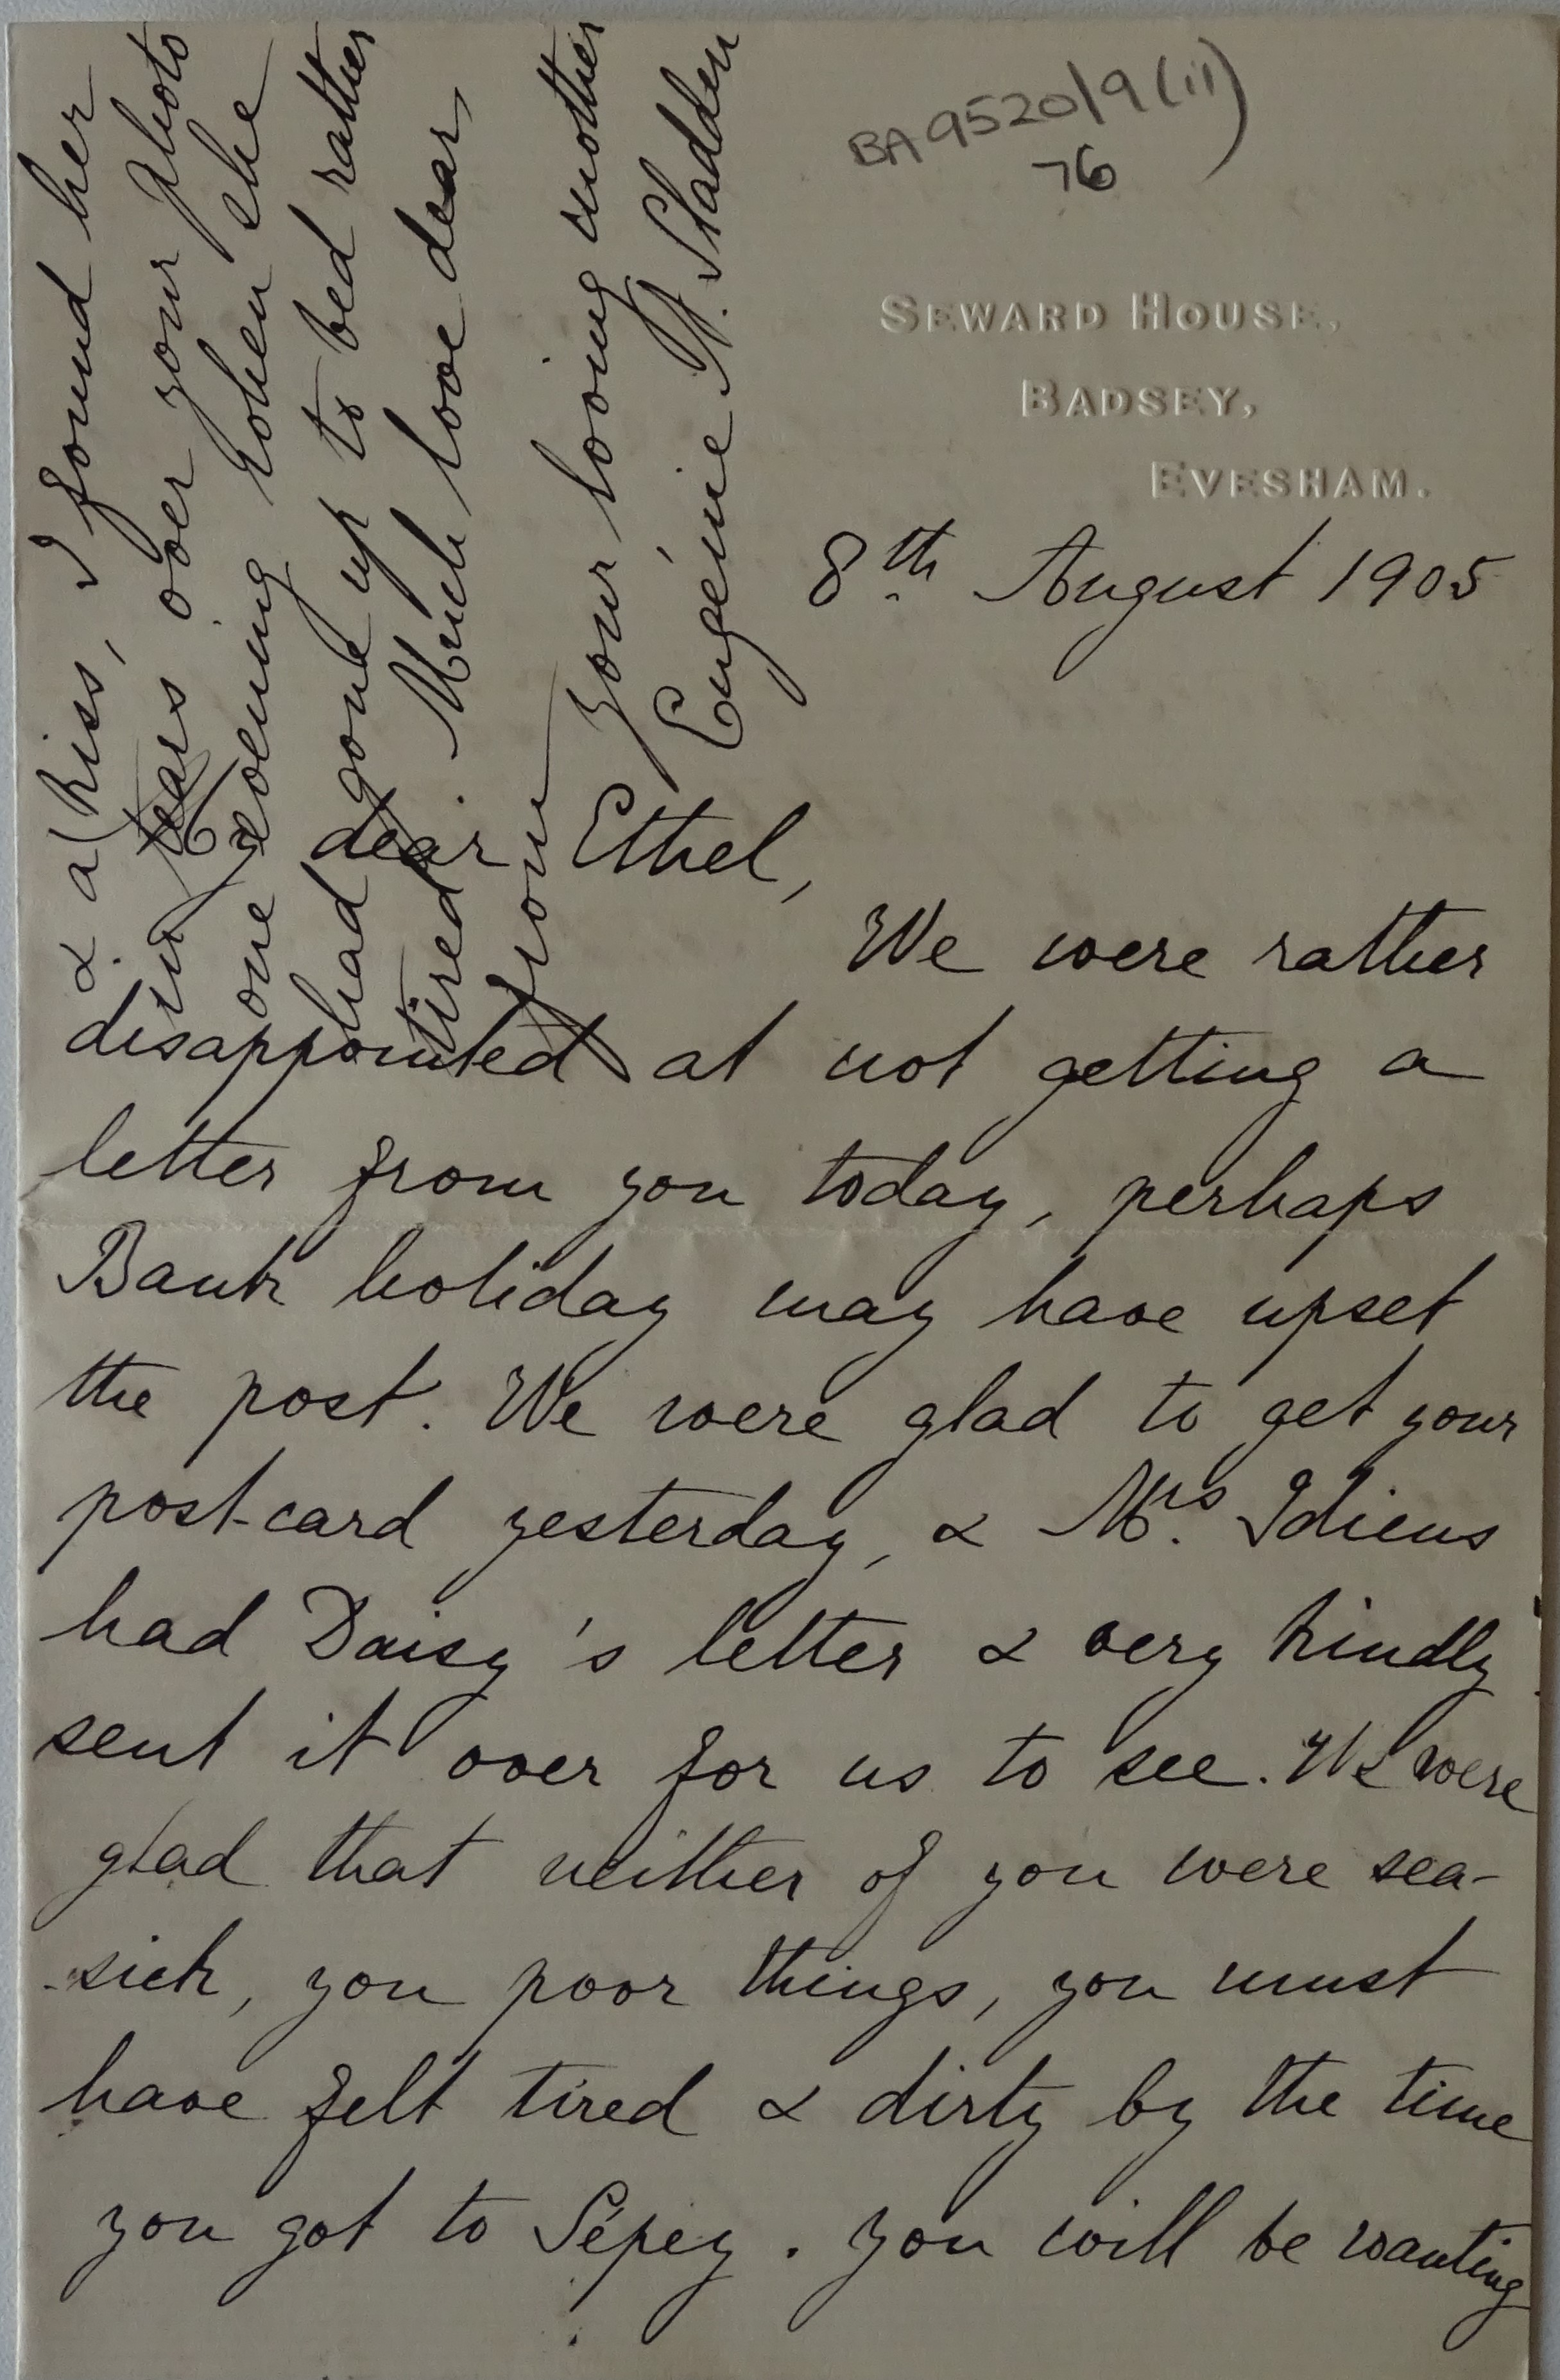 BA9520/9(iii)
76
SEWARD HOUSE,
BADSEY,
EVESHAM.
8th August 1905
My dear Ethel,
We were rather
disappointed at not getting a
letter from you today, perhaps
Bank holiday may have upset
the post. We were glad to get your
post-card yesterday, & Mrs. Idiens
had Daisy's letter & very kindly
sent it over for us to see. We were
glad that neither of you were sea-
-sick, you poor things, you must
have felt tired & dirty by the time
you got to Sépey. You will be wanting
& a kiss, I found her
in tears over your photo
one evening when she
had gone up to bed rather
tired. Much love dear,
from
your loving mother
Eugénie N. Sladden